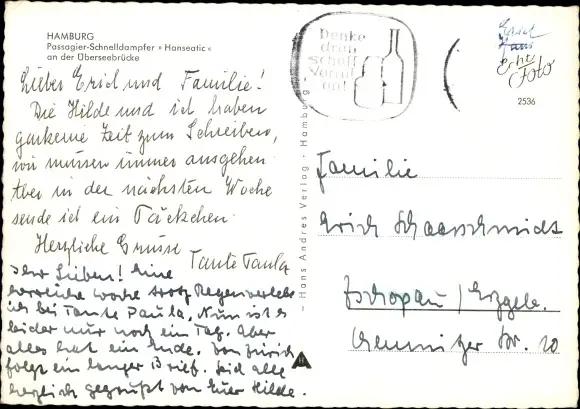 HAMBURG
Passagier-Schnelldampfer »Hanseatic«
an der Überseebrücke
Lieber Erich und Familie!
Die Hilde und ich haben
garkeine Zeit zum Schreiben,
wir müssen immer ausgehen
Aber in der nächsten Woche
sende ich ein Päckchen.
Herzliche Grüsse
Tante Paula
Ihr Lieben! Eine
herrliche Woche trotz Regen verlebe
ich bei Tante Paula. Nun ist es
leider nur noch ein Tag. Aber
alles hat ein Ende. Von Zürich
folgt ein langer Brief. Seid alle
herzlich gegrüßt von Euer Hilde.
– Hans Andres Verlag - Hamburg –
Denke
dran
schaff
Vorrat
an!
Echt
Foto
2536
Familie
Erich Schaarschmidt
Zschopau / Erzgeb.
Chemnitzer Str. 20